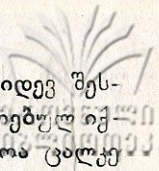 იდევ შეს-
ებულ იქ-
ოა ცალკე